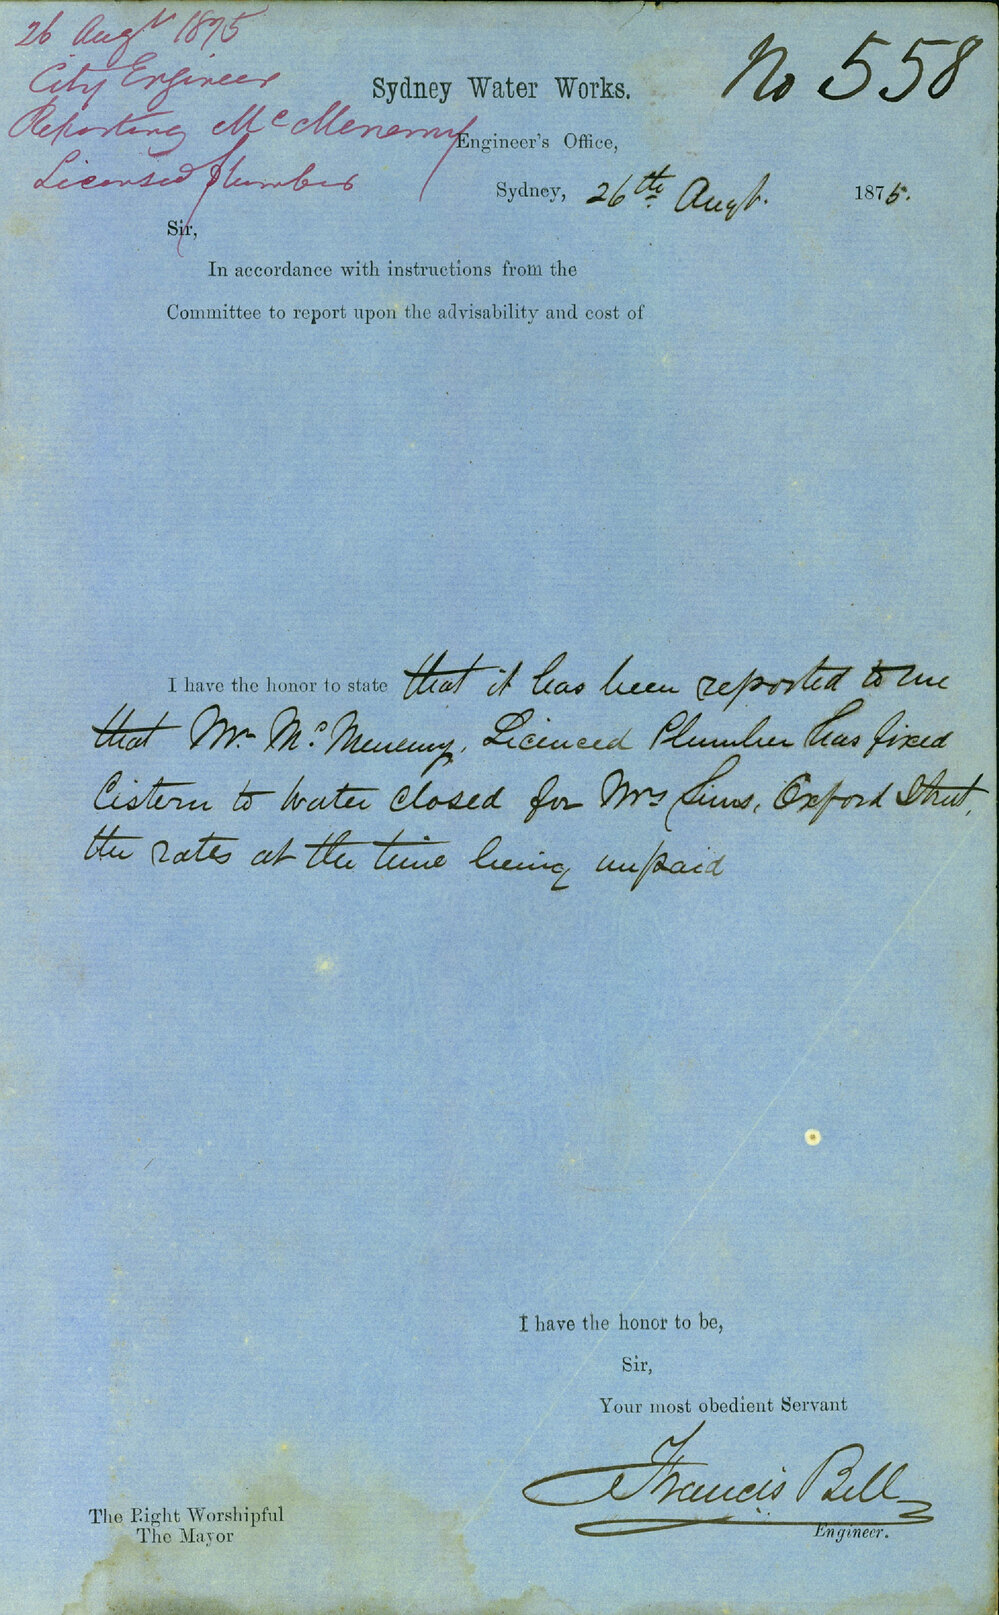 26 Augt 1875
City Engineer
Reporting McMenemy
Licensed plumber
No 558
Sydney Water Works.
Engineer's Office,
Sydney, 26th Augt. 1875.
Sir,
In accordance with instructions from the
Committee to report upon the advisability and cost of
I have the honor to state that it has been reported to me
that Mr. Mc Menemy, Licenced Plumber has fixed
Cistern to water closed for Mrs Sims, Oxford Street,
the rates at the time being unpaid
I have the honor to be,
Sir,
Your most obedient Servant
Francis Bell
Engineer.
The Right Worshipful
The Mayor